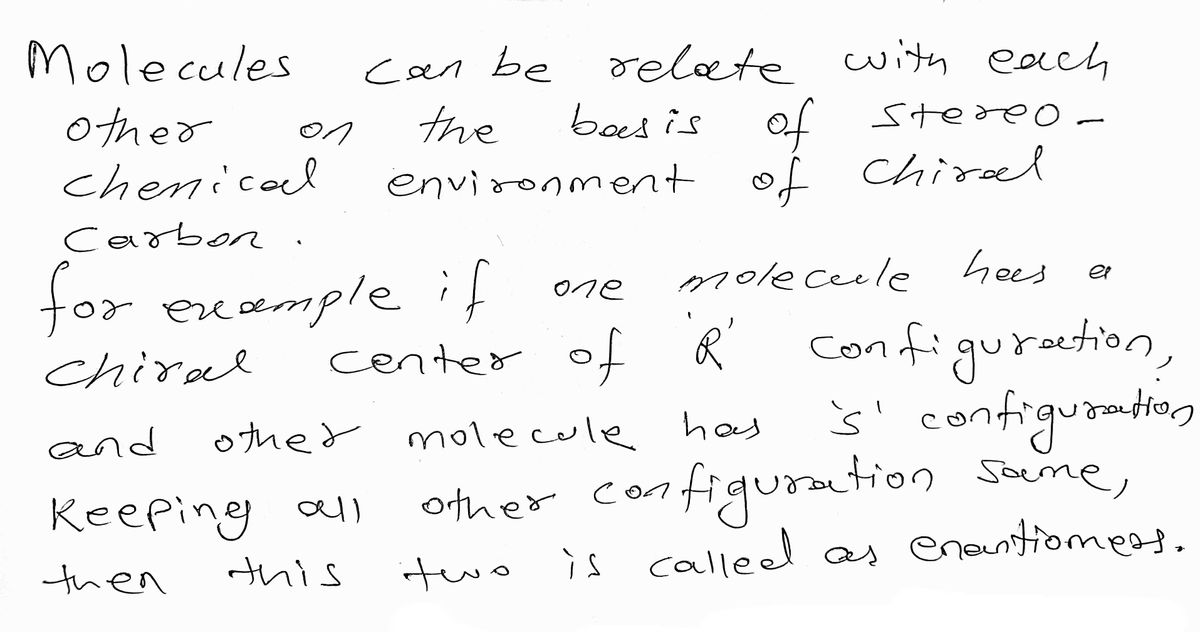 Molecules can be relate with each
other on the basis of stereo-
chemical environment of chiral
carbon.
for example if one molecule has a
chiral center of 'R' configuration,
and other molecule has 's' configuration
keeping all other configuration same,
then this two is called as enantiomers.